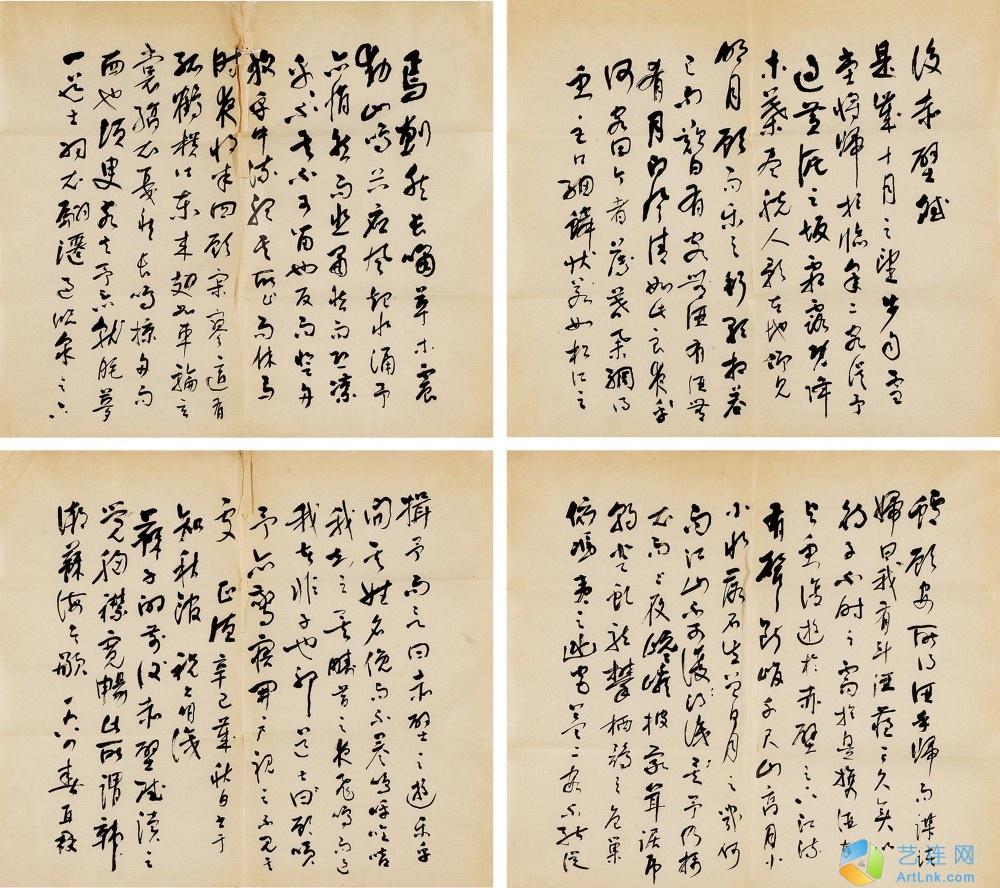 後赤壁賦
是歲十月之望步自雪
堂將歸於臨皋二客從予
過黃泥之坂霜露既降
木葉盡脫人影在地仰見
明月顧而樂之行歌相答
已而歎曰有客無酒有酒無
肴月白風清如此良夜乎
何客曰今者薄暮舉網得
魚巨口細鱗狀若如松江之
鱸顧安所得酒乎歸而謀諸
婦曰我有斗酒藏之久矣以
待子不時之需於是攜酒
與魚復遊於赤壁之下江流
有聲斷岸千尺山高月小
水落石出曾日月之幾何
而江山不可復識矣予乃攝
衣而上履巉巖披蒙茸踞虎
豹登虬龍攀棲鶻之危巢
俯馮夷之幽宮蓋二客不能從
焉劃然長嘯草木震
動山鳴谷應風起水涌予
亦悄然而悲肅然而恐凜
乎其不可留也反而登舟
放乎中流聽其所止而休焉
時夜將半四顧寂寥適有
孤鶴橫江東來翅如車輪玄
裳縞衣戛然長鳴掠舟而
西也須臾客去予亦就睡夢
一道士羽衣翩躚過臨皋之下
揖予而言曰赤壁之遊樂乎
問其姓名俛而不答嗚呼噫嘻
我知之矣疇昔之夜飛鳴而過
我者非子也耶道士曰顧笑
予亦驚寤開戶視之不見其
處 正德辛巳歲秋日書于
知秋館 祝允明識
蘇子的前後赤壁賦讀之
覺胸襟寬暢此所謂韓
潮蘇海者歟 一九八四春
艺连网
ArtLnk.com